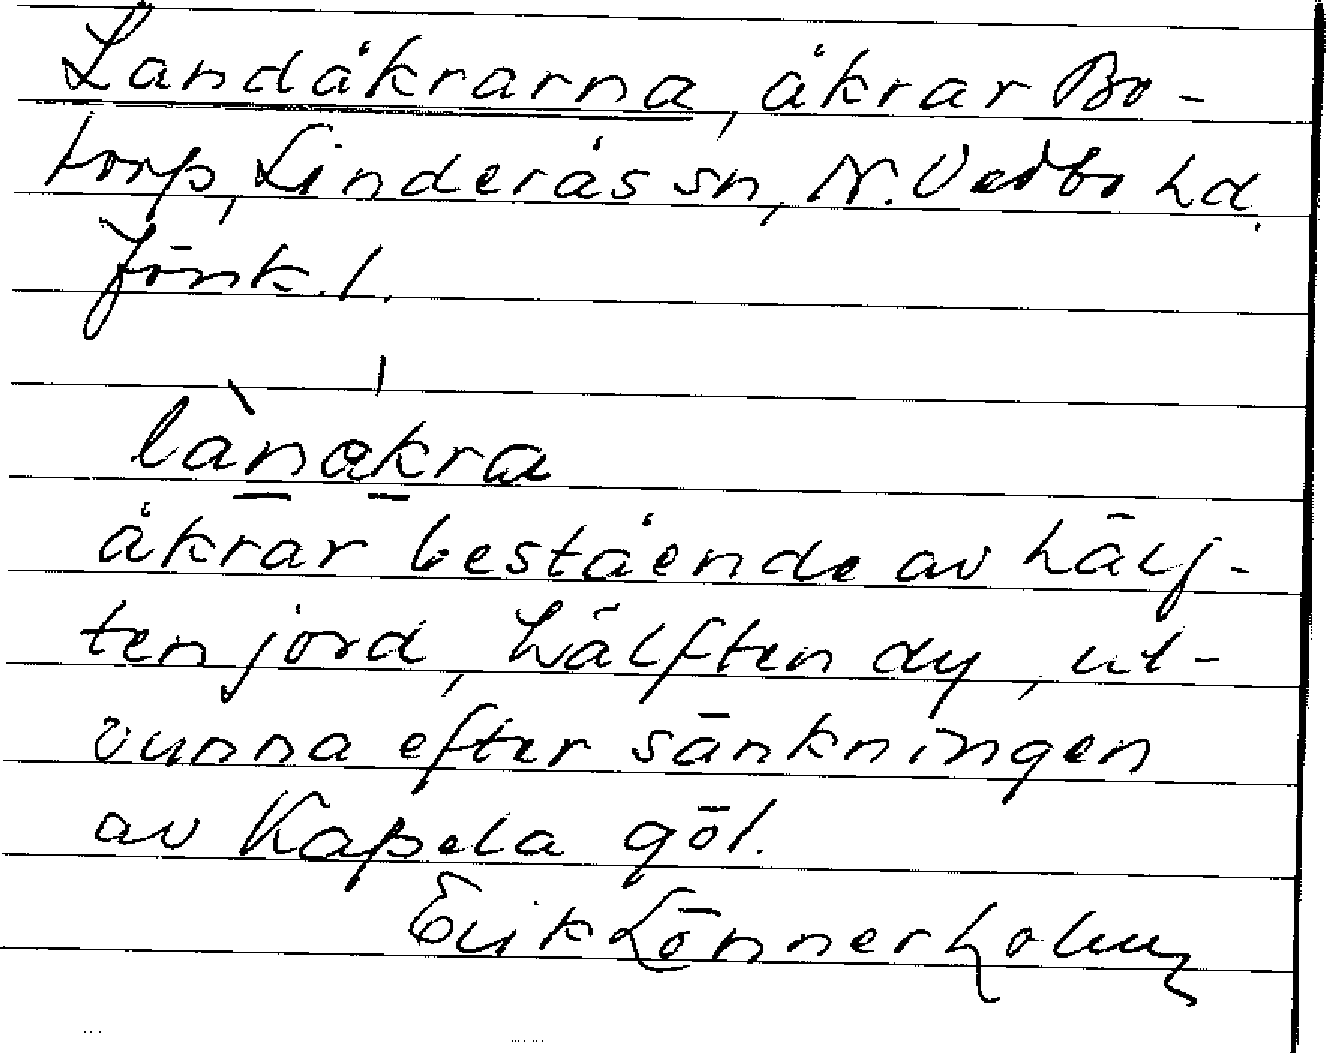 Landåkrarna, åkrar Bo-
torp, Linderås sn, N. Vedbo hd.
Jönk. l.
lànakra
åkrar bestående av hälf-
ten jord, hälften dy, ut-
vunna efter sänkningen
av Kapela göl.
Erik Lönnerholm